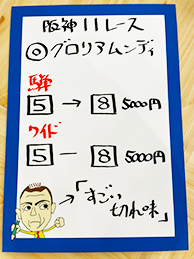 阪神11レース
◎グロリアムンディ
馬単
5→8 5000円
ワイド
5－8 5000円
→「すごい
切れ味」